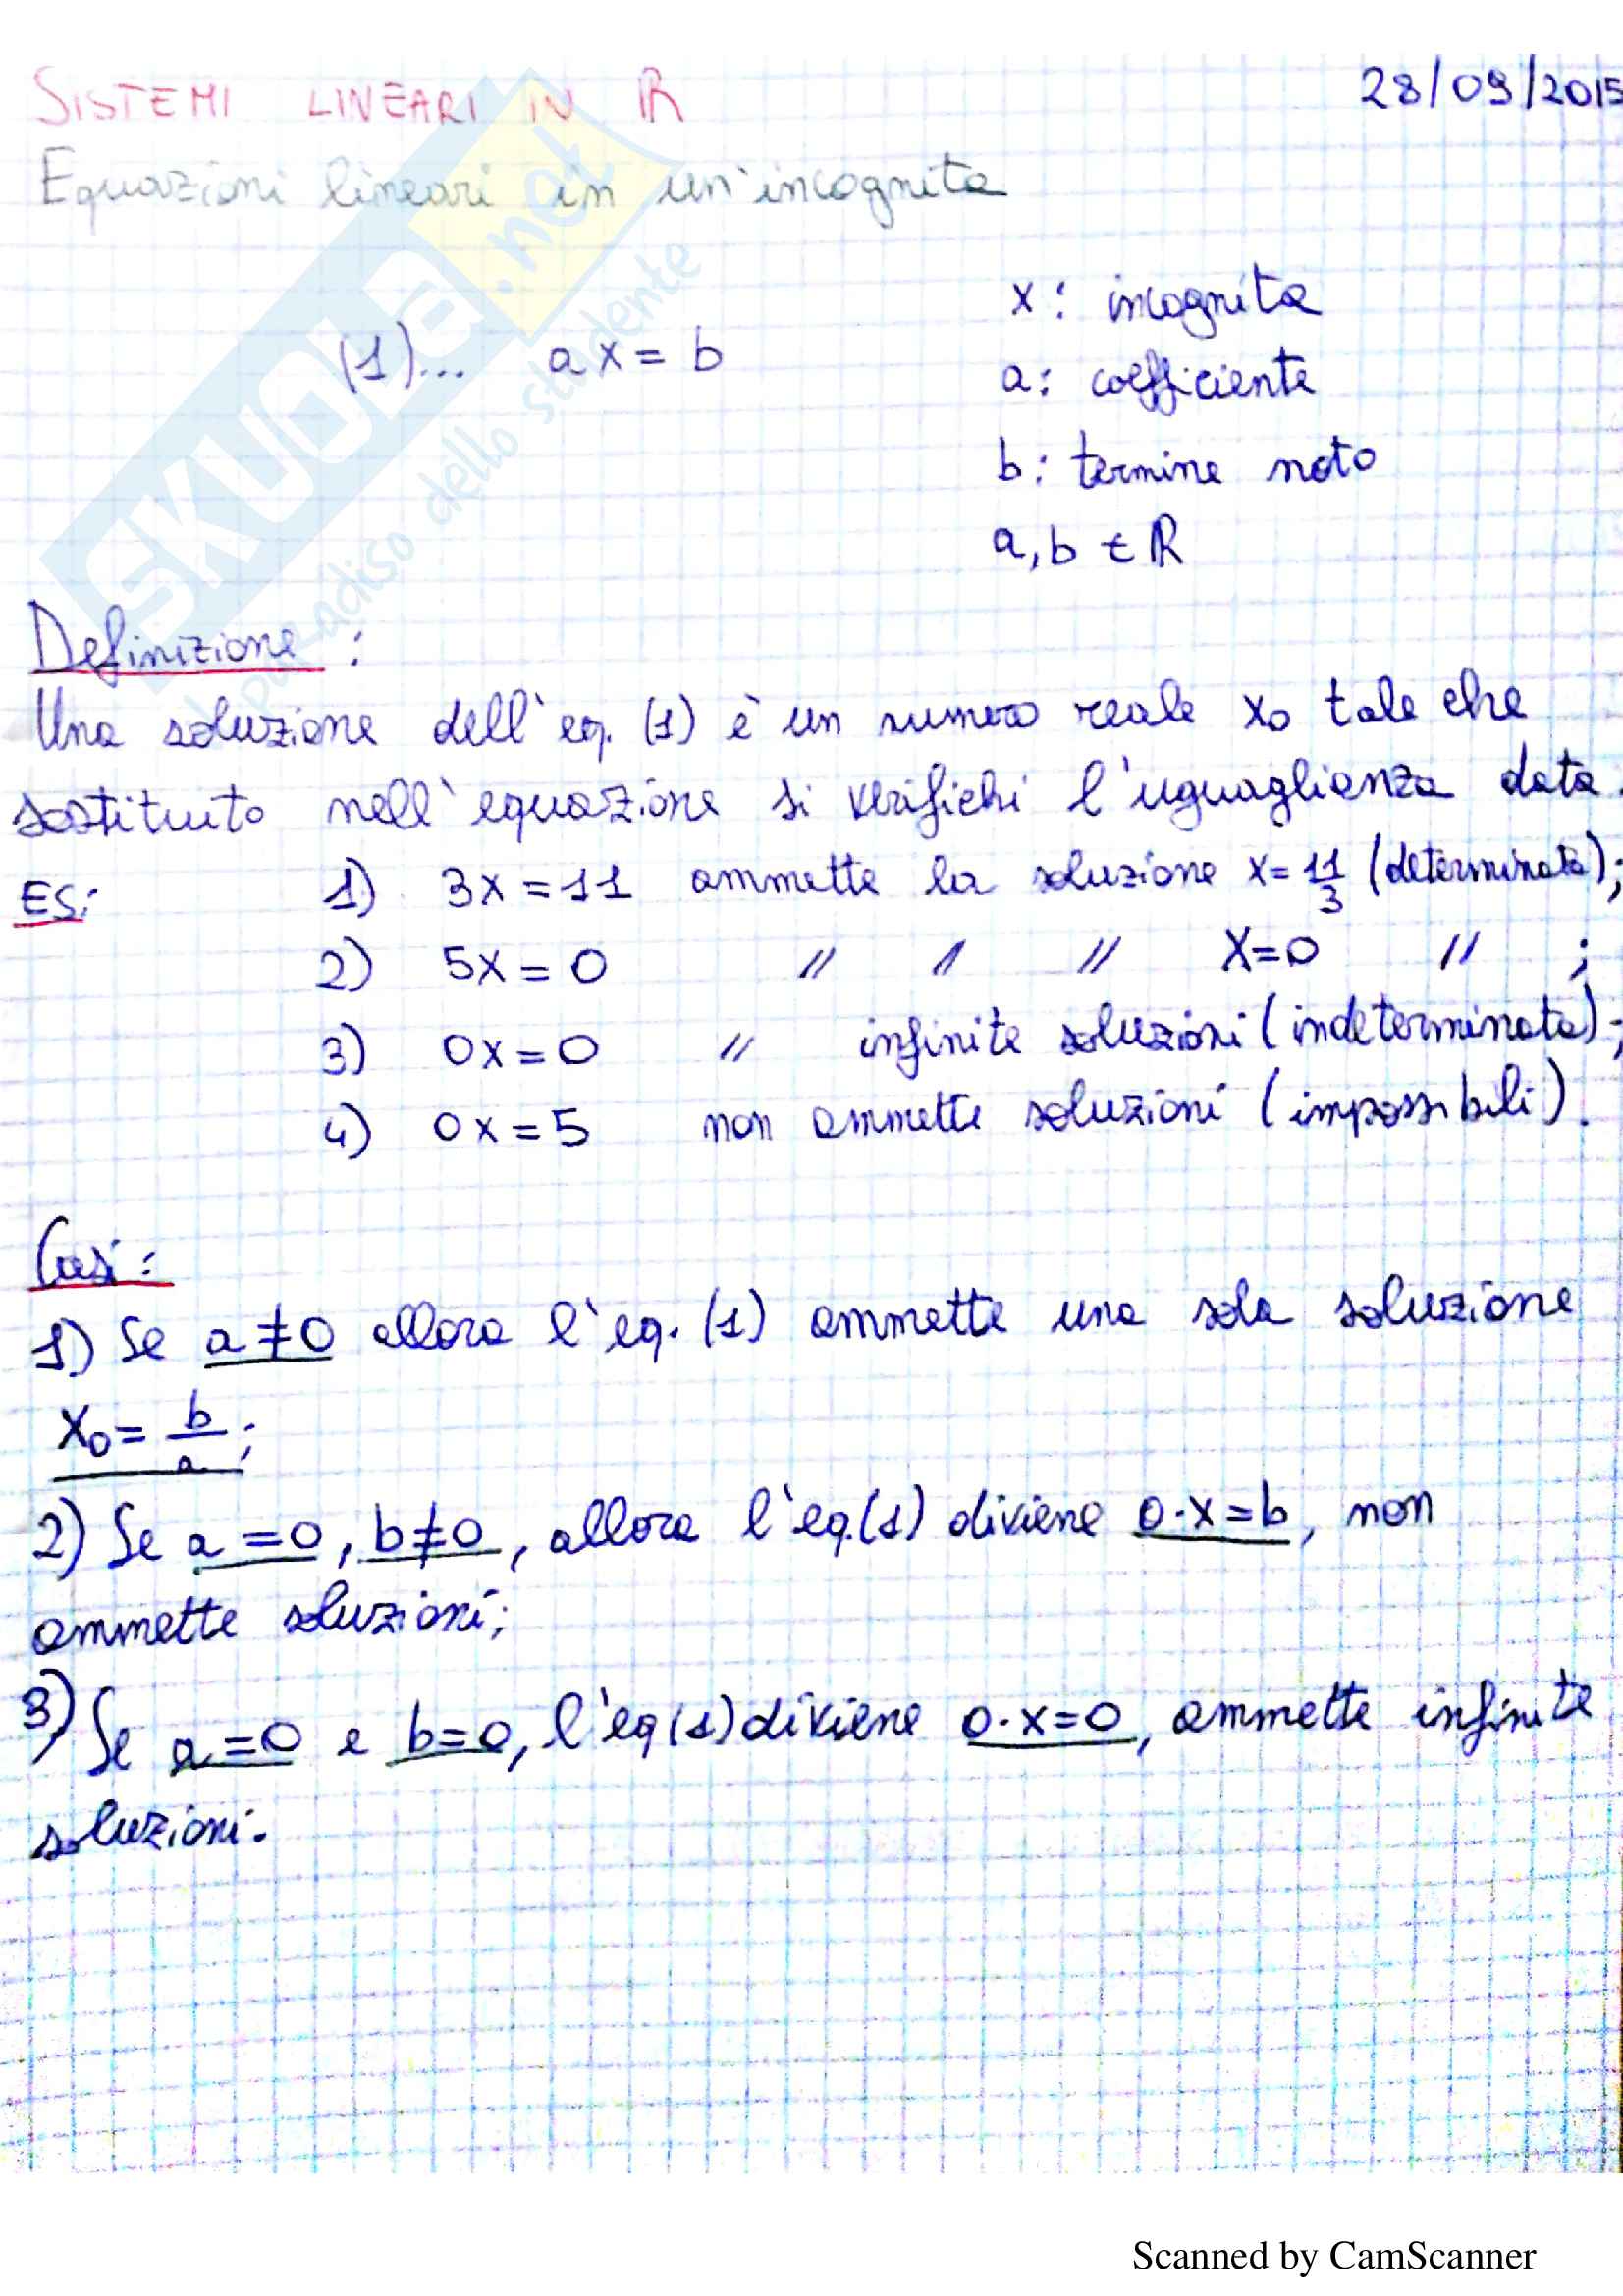 SISTEMI LINEARI IN ℝ 28/09/2015
Equazioni lineari in un'incognita
x: incognita
(1)... ax = b
a: coefficiente
b: termine noto
a, b ∈ ℝ
Definizione:
Una soluzione dell'eq. (1) è un numero reale x₀ tale che
sostituito nell'equazione si verifichi l'uguaglianza data.
ES: 1) 3x = 11 ammette la soluzione x = 11/3 (determinata);
2) 5x = 0 // // // x=0 // ;
3) 0x = 0 // infinite soluzioni (indeterminata);
4) 0x = 5 non ammette soluzioni (impossibili).
Casi:
1) Se a ≠ 0 allora l'eq. (1) ammette una sola soluzione
x₀ = b/a;
2) Se a = 0, b ≠ 0, allora l'eq.(1) diviene 0·x=b, non
ammette soluzioni;
3) Se a=0 e b=0, l'eq(1) diviene 0·x=0, ammette infinite
soluzioni.
SKUOLA.net
il paradiso dello studente
Scanned by CamScanner